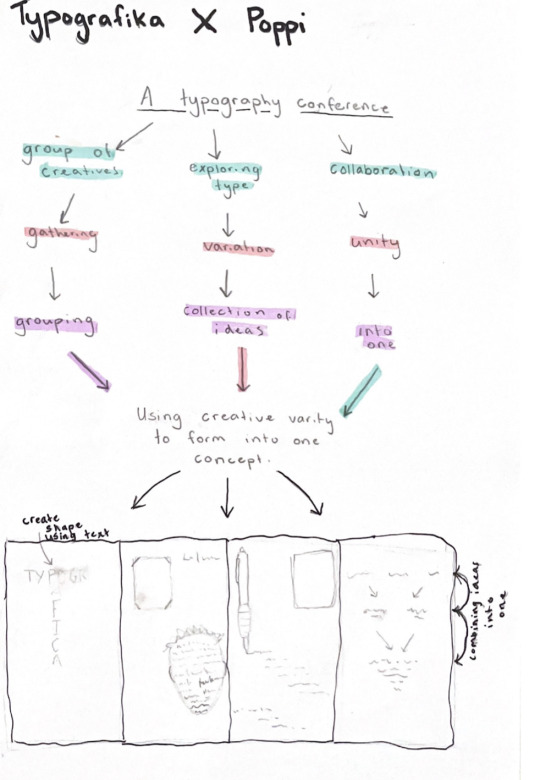 Typografika X Poppi
A typography conference
group of
creatives
exploring
type
collaboration
gathering
variation
unity
grouping
collection of
ideas
into
one
Using creative varity
to form into one
concept.
create
shape
using text
TYPOGR
F
I
C
A
combining ideas
into
one